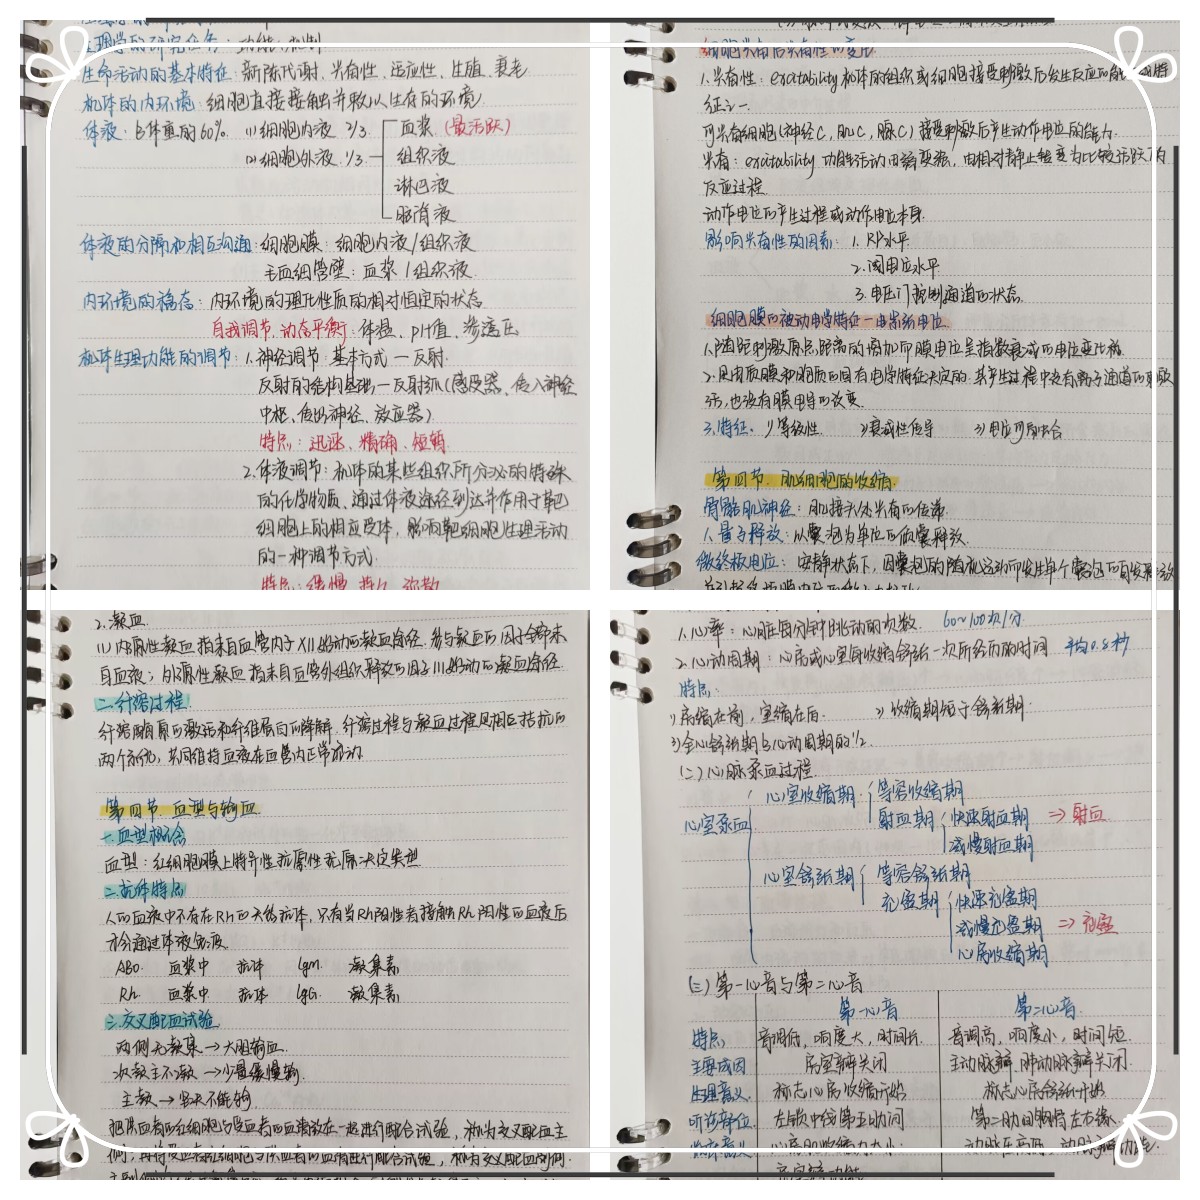 生理学的研究任务：功能、机制
生命活动的基本特征：新陈代谢、兴奋性、适应性、生殖、衰老
机体的内环境：细胞直接接触并赖以生存的环境
体液：占体重的60%. (1)细胞内液 2/3. 血浆 (最活跃)
(2)细胞外液 1/3. 组织液
淋巴液
脑脊液
体液的分隔和相互沟通：细胞膜：细胞内液/组织液
毛血细管壁：血浆/组织液
内环境的稳态：内环境的理化性质的相对恒定的状态
自我调节、动态平衡：体温、pH值、渗透压
机体生理功能的调节：1.神经调节：基本方式—反射.
反射的结构基础—反射弧(感受器、传入神经
中枢、传出神经、效应器)
特点：迅速、精确、短暂
2.体液调节：机体的某些组织所分泌的特殊
的化学物质、通过体液途径到达并作用于靶
细胞上的相应受体，影响靶细胞生理活动
的一种调节方式
特点：缓慢、持久、弥散
细胞兴奋后兴奋性的变化
1.兴奋性：excitability 机体的组织或细胞接受刺激后发生反应的能力
征之一.
可兴奋细胞(神经C，肌C，腺C)接受刺激后产生动作电位的能力.
兴奋：excitability 功能活动由弱变强，由相对静止转变为比较活跃的
反应过程.
动作电位的产生过程或动作电位本身.
影响兴奋性的因素：1. RP水平
2.阈电位水平
3.电压门控制通道的状态
细胞膜的被动电学特征—电紧张电位
1.随距刺激原点距离的增加而膜电位呈指数衰减的电位变化称
2.是由质膜和胞质的固有电学特征决定的.其产生过程中没有离子通道的激
活，也没有膜电导的改变.
3.特征. 1)等级性 2)衰减性传导 3)电位可融合
第四节. 肌细胞的收缩
骨骼肌神经：肌接头处兴奋的传递
1.量子释放：以囊泡为单位的倾囊释放.
微终板电位：安静状态下，因囊泡的随机运动而发生单个囊泡的自发释放
2.凝血
(1)内源性凝血指来自血管内于XII始动的凝血途径.参与凝血的因子全部来
自血液；外源性凝血指来自血管外组织释放的因子III始动的凝血途径
二.纤溶过程
纤溶酶原的激活和纤维蛋白的降解，纤溶过程与凝血过程是相互拮抗的
两个系统，共同维持血液在血管内正常流动
第四节. 血型与输血
一.血型概念
血型：红细胞膜上特异性抗原性抗原决定类型
二.抗体特点
人的血液中不存在Rh的天然抗体，只有当Rh阴性者接触Rh阳性的血液后
才会通过体液免疫
ABO. 血浆中 抗体 IgM. 凝集素
Rh. 血浆中 抗体 IgG. 凝集素
三.交叉配血试验
两侧无凝集→大胆输血.
次凝主不凝→少量缓慢输
主凝→坚决不能输
把供血者的红细胞与受血者的血清放在一起进行配合试验，称为交叉配血主
侧；再将受血者红细胞与供血者的血清进行配合试验，称为交叉配血次侧.
1.心率：心脏每分钟跳动的次数. 60~100次/分
2.心动周期：心房或心室每收缩舒张一次所经历的时间 平均0.8秒
特点.
1)房缩在前，室缩在后. 2)收缩期短于舒张期
3)全心舒张期占心动周期的1/2.
(二)心脏泵血过程.
心室收缩期 等容收缩期
心室泵血 射血期 快速射血期 ⇒射血
减慢射血期
心室舒张期 等容舒张期
充盈期 快速充盈期
减慢充盈期 ⇒充盈
心房收缩期
(三)第一心音与第二心音
第一心音 第二心音
特点 音调低，响度大，时间长 音调高，响度小，时间短
主要成因 房室瓣关闭 主动脉瓣、肺动脉瓣关闭
生理意义 标志心房收缩开始 标志心房舒张开始
听诊部位 左锁中线第五肋间 第二肋间胸骨左右缘
临床意义 心房肌收缩力大小